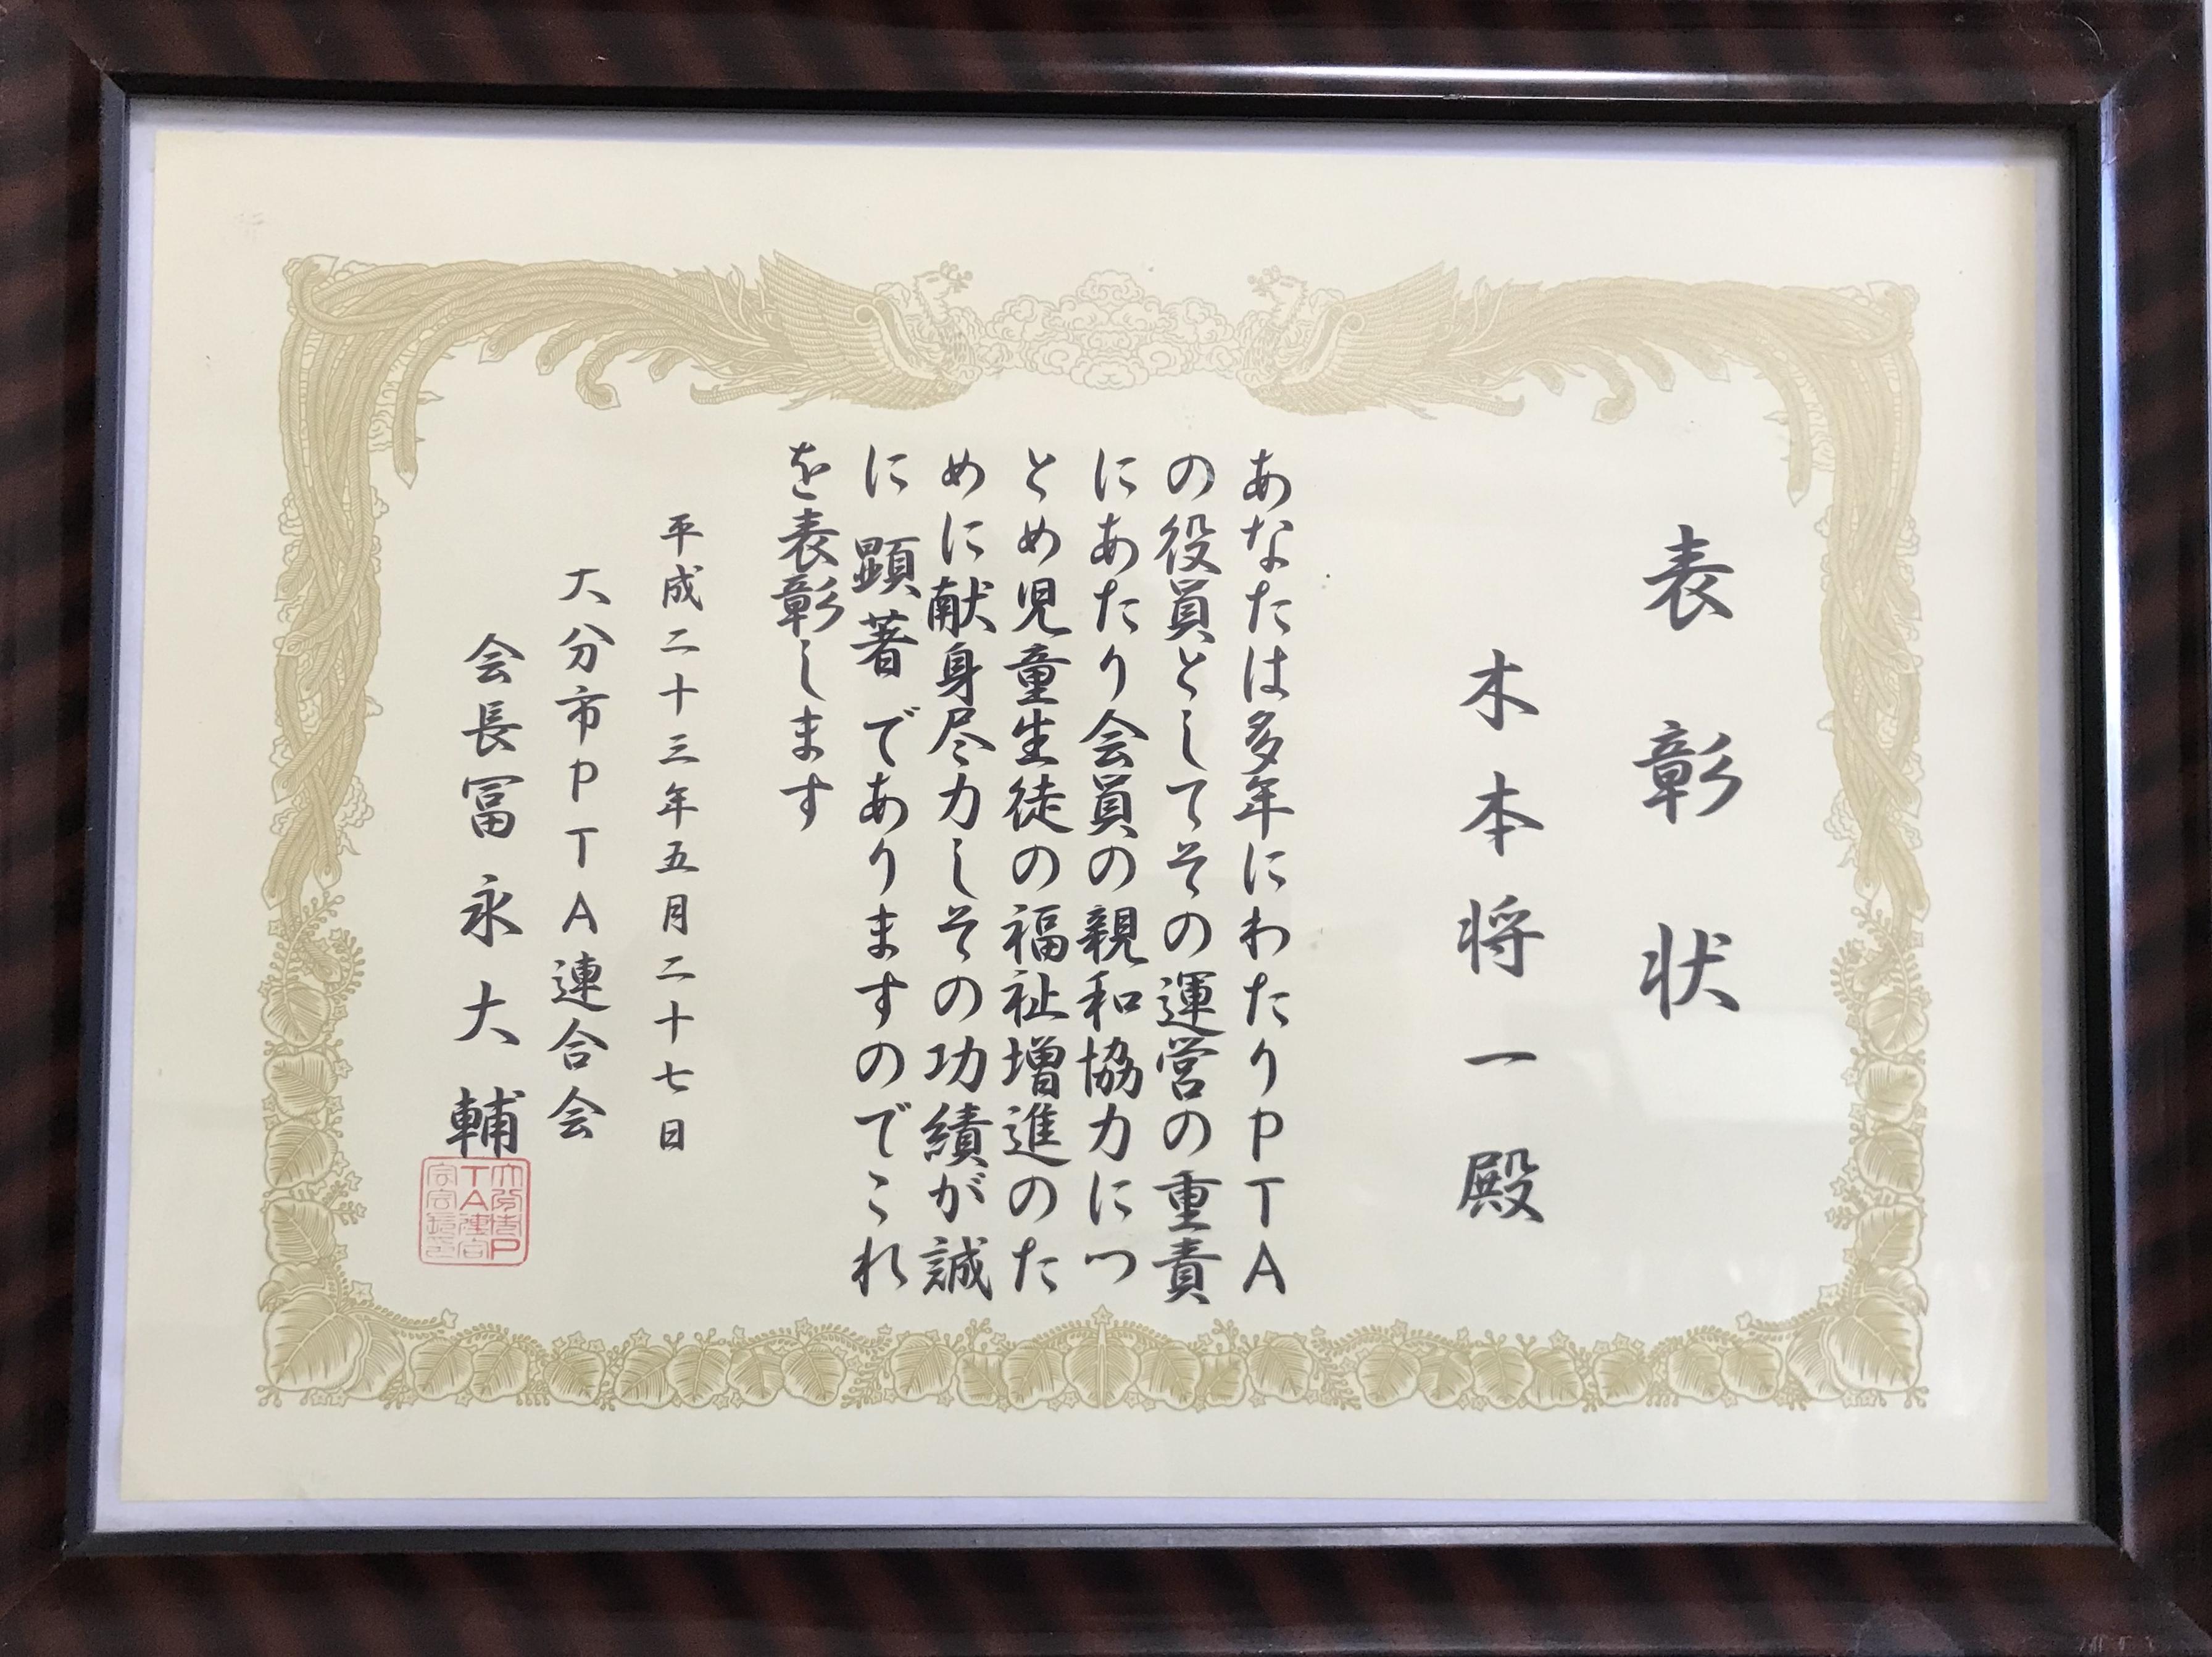 表彰状
木本将一殿
あなたは多年にわたりPTA
の役員としてその運営の重責
にあたり会員の親和協力につ
とめ児童生徒の福祉増進のた
めに献身尽力しその功績が誠
に顕著でありますのでこれ
を表彰します
平成二十三年五月二十七日
大分市PTA連合会
会長冨永大輔
大分市P
TA連合
会会長印